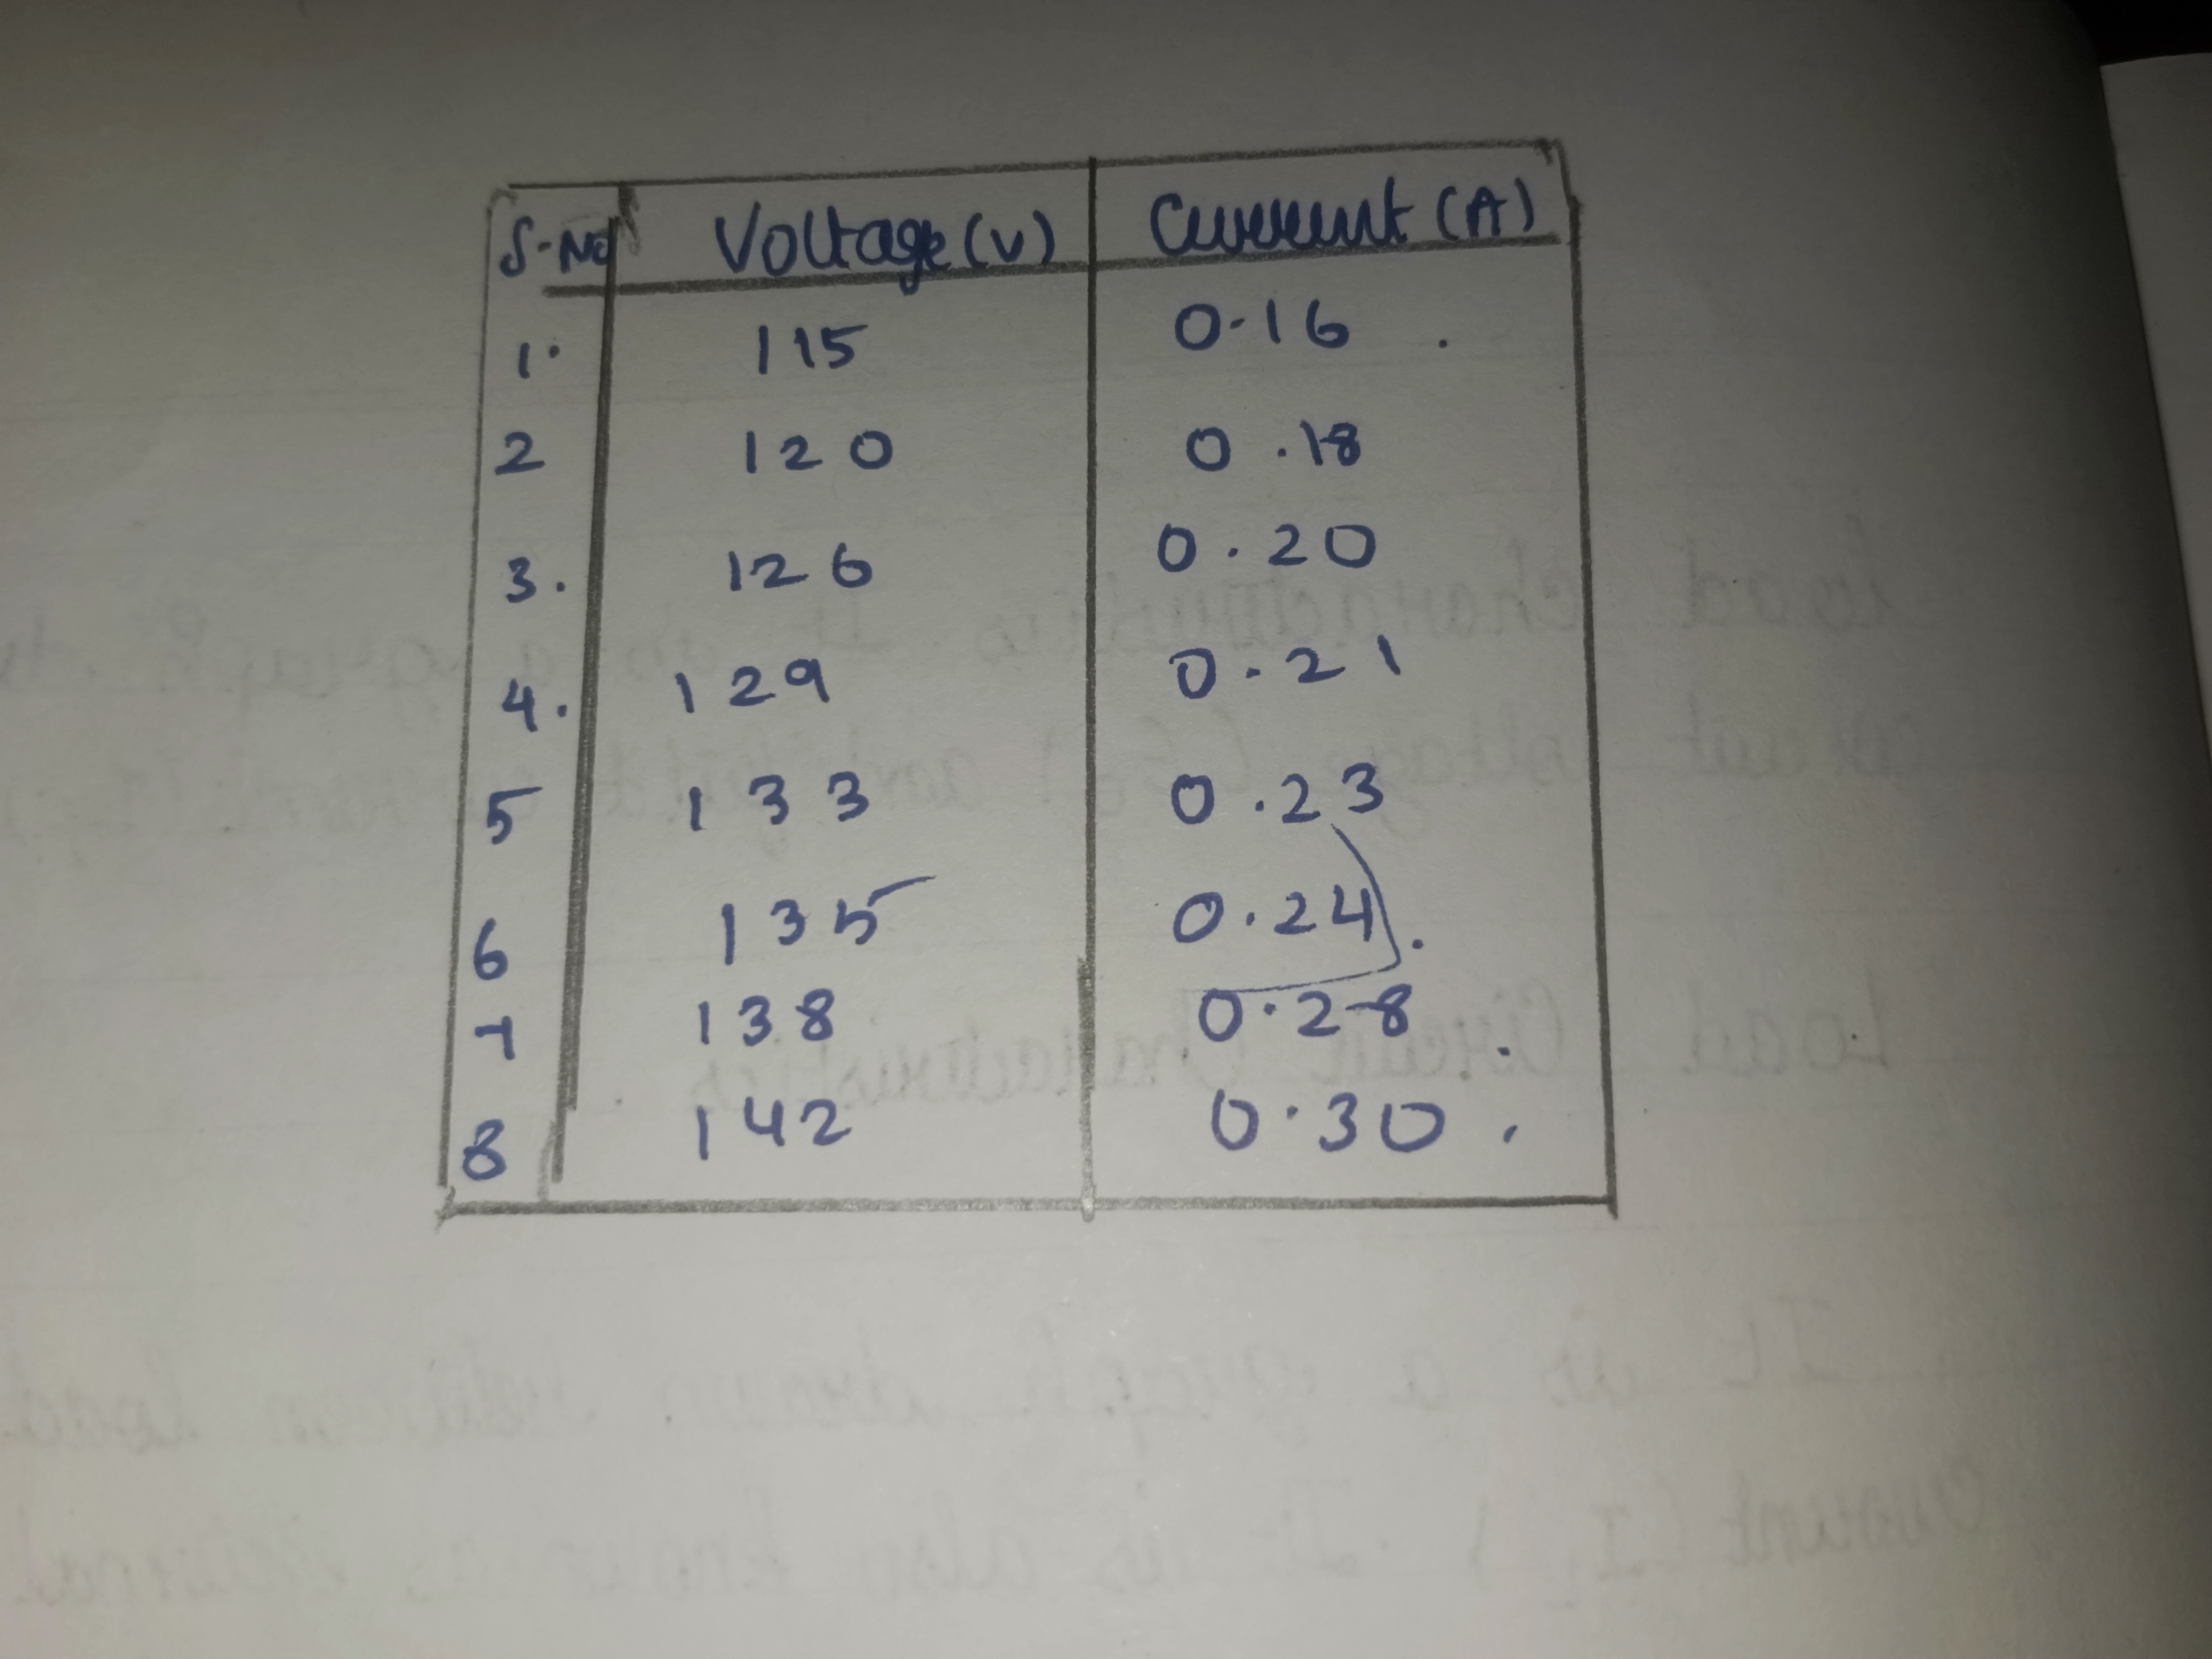 S-No Voltage (V) Current (A)
1. 115 0.16
2 120 0.18
3. 126 0.20
4. 129 0.21
5 133 0.23
6 135 0.24
7 138 0.28
8 142 0.30